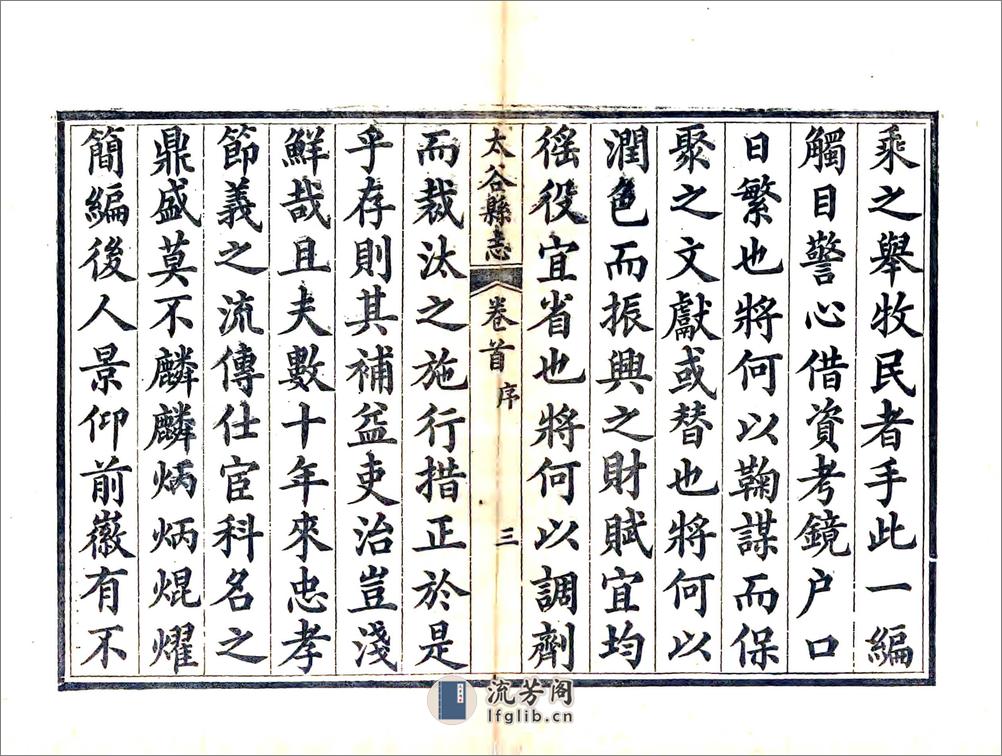 乘之舉牧民者手此一編
觸目警心借資考鏡户口
日繁也將何以鞠謀而保
聚之文獻或替也將何以
潤色而振興之財賦宜均
徭役宜省也將何以調劑
太谷縣志 卷首 序 三
而裁汰之施行措正於是
乎存則其補益吏治豈淺
鮮哉且夫數十年來忠孝
節義之流傳仕宦科名之
鼎盛莫不麟麟炳炳焜耀
簡編後人景仰前徽有不
流芳阁
lfglib.cn